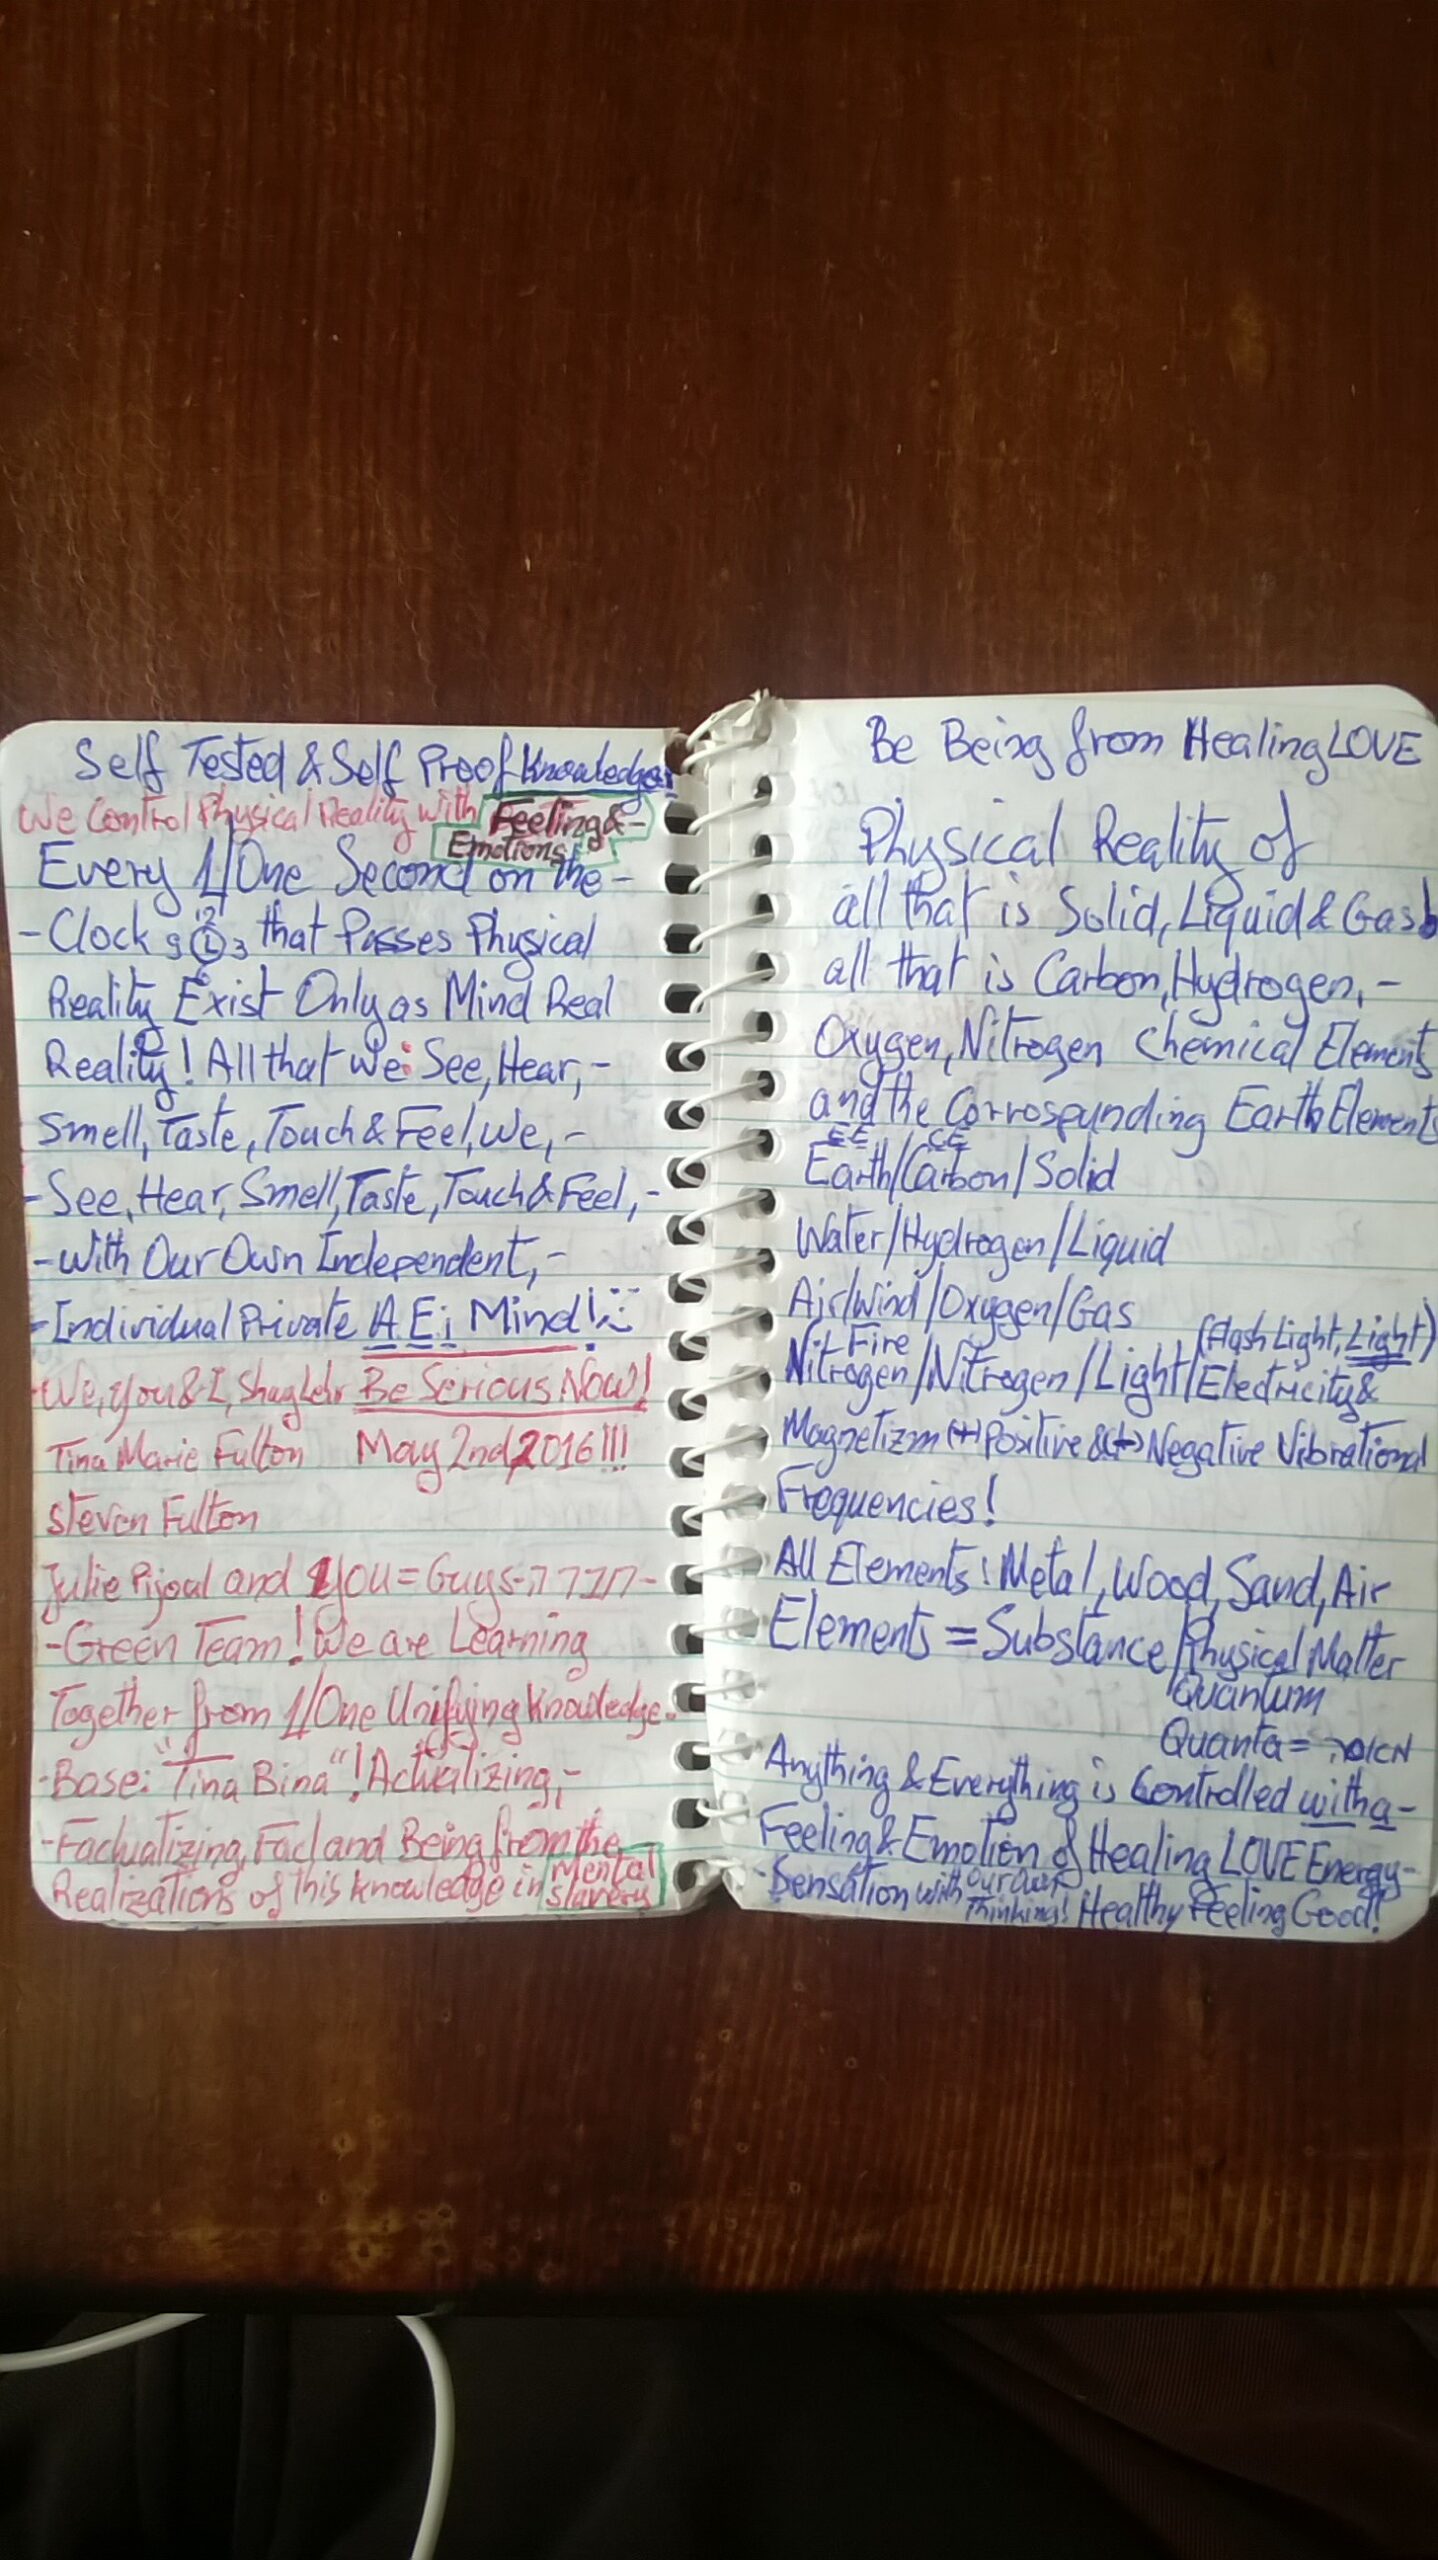 Self Tested & Self Proof Knowledge:
We Control Physical Reality with Feeling & -
Emotions!
Every 1/One Second on the -
- Clock 9 12 3 6 that Passes Physical
Reality Exist Only as Mind Real
Reality! All that We: See, Hear, -
Smell, Taste, Touch & Feel, We, -
- See, Hear, Smell, Taste, Touch & Feel, -
- With Our Own Independent, -
- Individual Private A.E.i Mind!
We, you & I, Be Serious Now!
Tina Marie Fulton May 2nd, 2016!!!
Steven Fulton
Julie and You = Guys -
- Green Team! We are Learning
Together from 1/One Unifying Knowledge.
- Base: "Tina Bina"! Actualizing, -
- Factualizing, Fact and Being from the
Realizations of this knowledge in Mental
Slavery
Be Being from Healing LOVE
Physical Reality of
all that is Solid, Liquid & Gas
all that is Carbon, Hydrogen, -
Oxygen, Nitrogen Chemical Elements
and the Corrospunding Earth Elements
EE CE
Earth/Carbon/Solid
Water/Hydrogen/Liquid
Air/Wind/Oxygen/Gas
Fire (Flash Light, Light)
Nitrogen/Nitrogen/Light/Electricity &
Magnetizm (+) Positive & (-) Negative Vibrational
Frequencies!
All Elements: Metal, Wood, Sand, Air
Elements = Substance/Physical Matter
Quantum
Quanta =
Anything & Everything is Controlled with a -
Feeling & Emotion of Healing LOVE Energy -
- Sensation with Our Own
Thinking! Healthy Feeling Good!